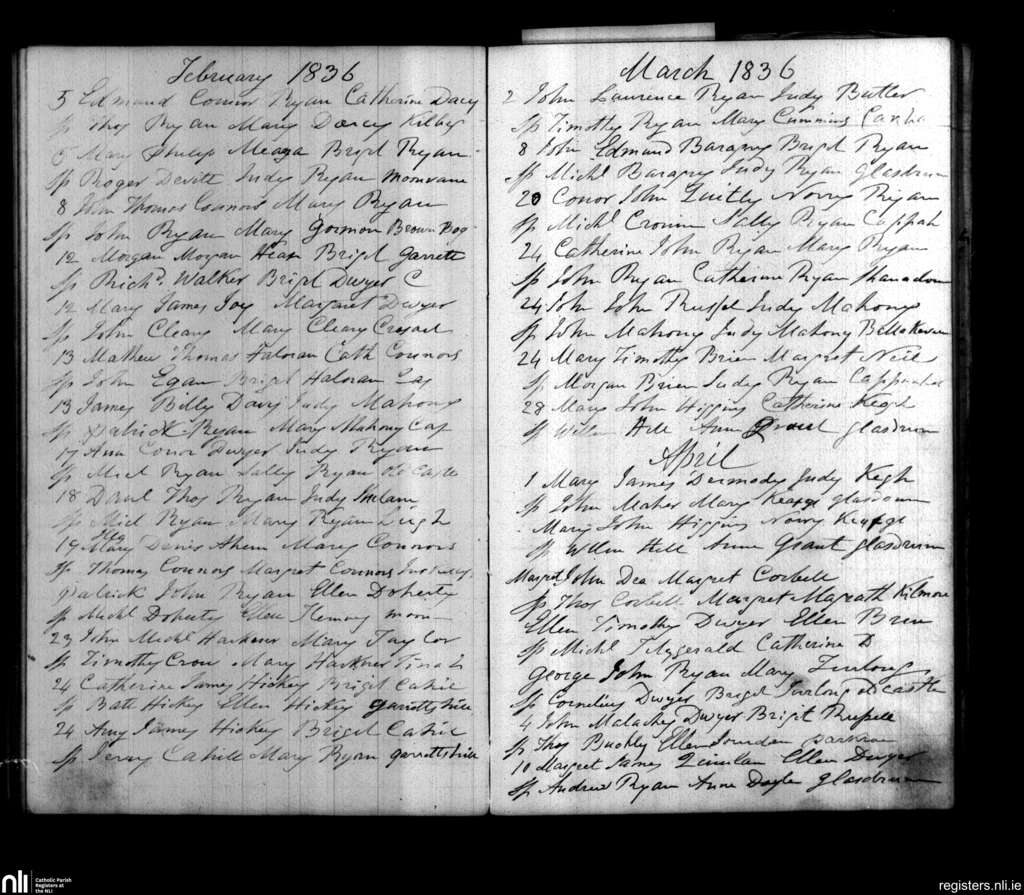 February 1836
5 Edmund Connor Ryan Catherine Dacy
sp Thos Ryan Mary Darcy Kilbeg
5 Mary Philip Meaga Brigt Ryan
sp Roger Devitt Judy Ryan
8 John Thomas Connors Mary Ryan
sp John Ryan Mary Gormon Brown Bog
12 Morgan Morgan Brigt Garrett
sp Richd. Walker Brigt Dwyer C
12 Mary James Joy Margaret Dwyer
sp John Cleary Mary Cleary
13 Mathew Thomas Haloran Cath Connors
sp John Egan Brigt Haloran
13 James Billy Davy Judy Mahony
sp Patrick Ryan Mary Mahony Cap
17 Ann Conor Dwyer Judy Ryan
sp Micl Ryan Sally Ryan
18 Danl Thos Ryan Judy
sp Micl Ryan Mary Ryan
19 Mary Denis Ahern Mary Connors
sp Thomas Connors Margret Connors
Patrick John Ryan Ellen Doherty
sp Michl Doherty Ellen moon
23 John Michl Harkner Mary Taylor
sp Timothy Crow Mary Harkner
24 Catherine James Hickey Brigit Cahil
sp Batt Hickey Ellen Hickey garretts hill
24 Amy James Hickey Brigit Cahil
sp Jerry Cahill Mary Ryan garretts hill
March 1836
2 John Laurence Ryan Judy Butler
sp Timothy Ryan Mary Cummins
8 John Edmund Baragry Brigt Ryan
sp Michl Baragry Judy Ryan Glasdrum
20 Conor John Quilty Norry Ryan
sp Michl Cronin Sally Ryan Cappah
24 Catherine John Ryan Mary Ryan
sp John Ryan Catherine Ryan
24 John John Russel Judy Mahony
sp John Mahony Judy Mahony
24 Mary Timothy Brien Margret Neil
sp Morgan Brien Judy Ryan
28 Mary John Higgins Catherine Kegh
sp Willm Hill Ann Grant glasdrum
April
1 Mary James Dermody Judy Kegh
sp John Maher Mary glasdrum
Mary John Higgins Norry
sp Willm Hill Anne Grant glasdrum
Margret John Dea Margret Corbett
sp Thos Corbett Margret Magrath Kilmore
Ellen Timothy Dwyer Ellen Brien
sp Michl Fitzgerald Catherine D
George John Ryan Mary Furlong
sp Cornelius Dwyer Briget Furlong oldcastle
4 John Malachy Dwyer Brigit Russell
sp Thos Buckly Ellen
10 Margret James Quinlan Ellen Dwyer
sp Andrew Ryan Anne Doyle glasdrum
nli
Catholic Parish
Registers at
the NLI
registers.nli.ie